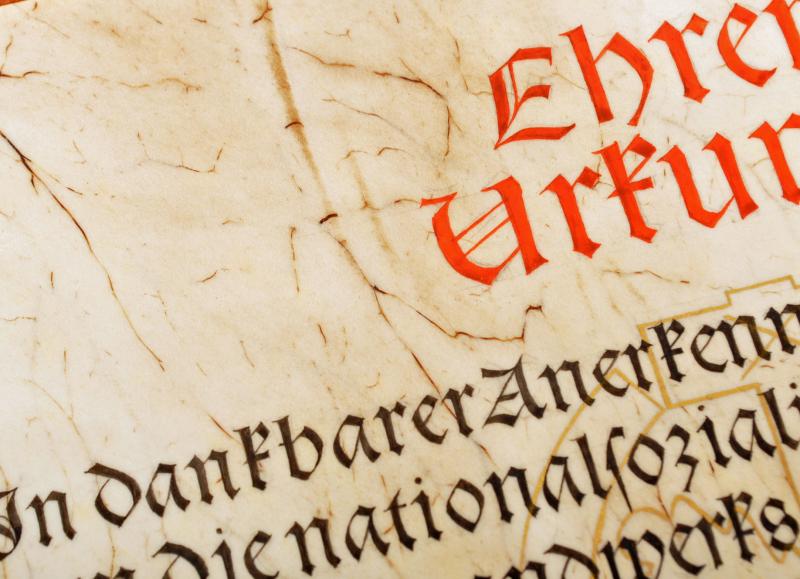 Ehren
Urkun
In dankbarer Anerkenn
die nationalsoziali
ndwerks